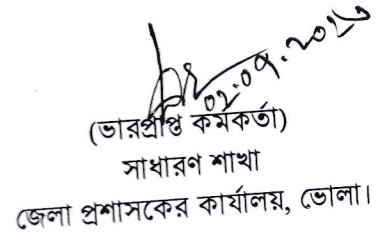 (ভারপ্রাপ্ত কর্মকর্তা)
সাধারণ শাখা
জেলা প্রশাসকের কার্যালয়, ভোলা।